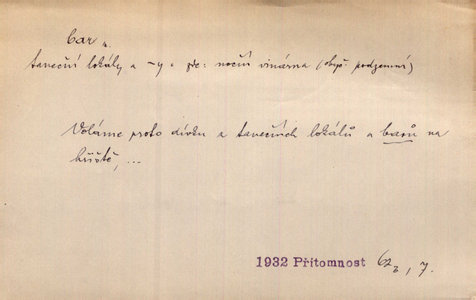 bar
taneční lokály a -y. př: noční vinárna (obyč. podzemní)
Voláme proto dívku z tanečních lokálů a barů na
hřiště, ...
1932 Přítomnost 62, 7.